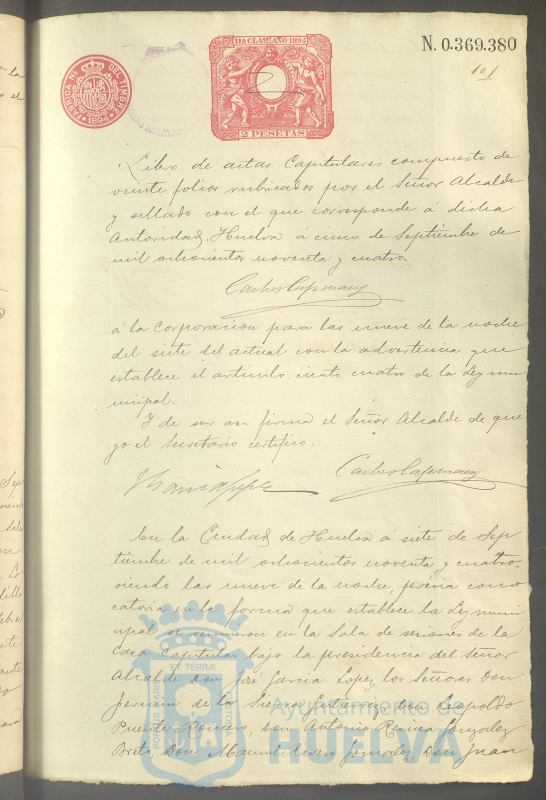 11ª CLASE AÑO 1894
N. 0.369.380
101
FABRICA NL DEL TIMBRE
1894
2 PESETAS
Libro de actas Capitulares compuesto de
veinte folios rubricados por el Señor Alcalde
y sellado con el que corresponde á dicha
Autoridad. Huelva á cinco de Septiembre de
mil ochocientos noventa y cuatro.
á la Corporacion para las nueve de la noche
del siete del actual con la advertencia que
establece el artículo ciento cuatro de la Ley mu
nicipal.
Y de ser asi firma el Señor Alcalde de que
yo el Secretario certifico.
En la Ciudad de Huelva á siete de Sep
tiembre de mil ochocientos noventa y cuatro,
siendo las nueve de la noche, previa convo
catoria en la forma que establece la Ley muni
cipal se reunieron en la Sala de sesiones de la
Casa Capitular bajo la presidencia del Señor
Alcalde Don José García Lopez, los Señores Don
de la Sierra Gutierrez, Don Leopoldo
Puente Romero, Don Antonio Gonzalez
Brito, Don Manuel Rivero Gonzalez, Don Juan
PORTUS MARIS ET TERRÆ CUSTODIA
Ayuntamiento de
HUELVA